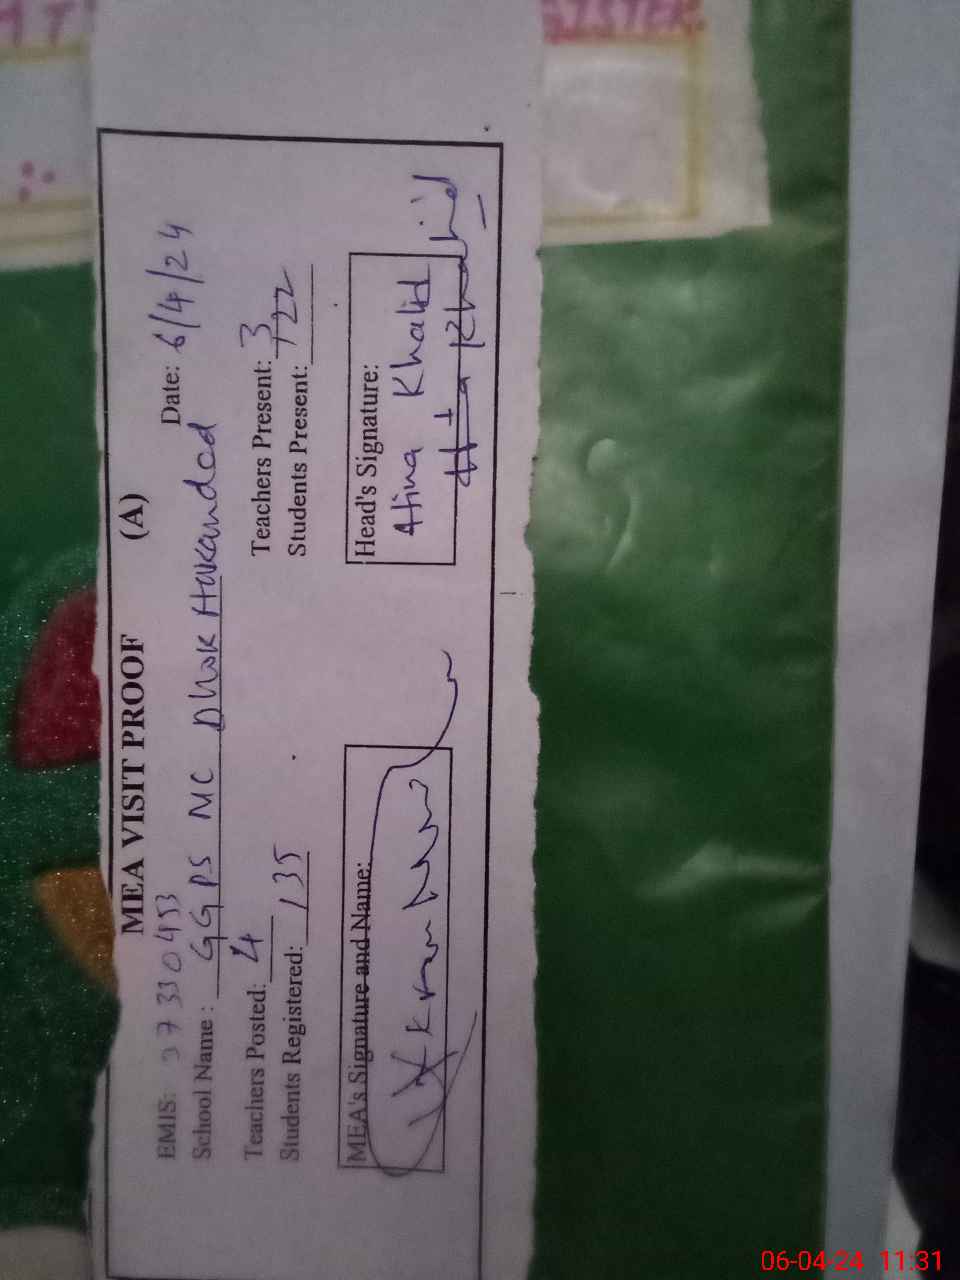 MEA VISIT PROOF (A)
EMIS: 37330453
School Name : GGPS MC Dhok Hukamdad Date: 6/4/24
Teachers Posted: 4 Teachers Present: 3
Students Registered: 135 Students Present: 122
MEA's Signature and Name: Head's Signature:
Hina Khalid
06-04-24 11:31